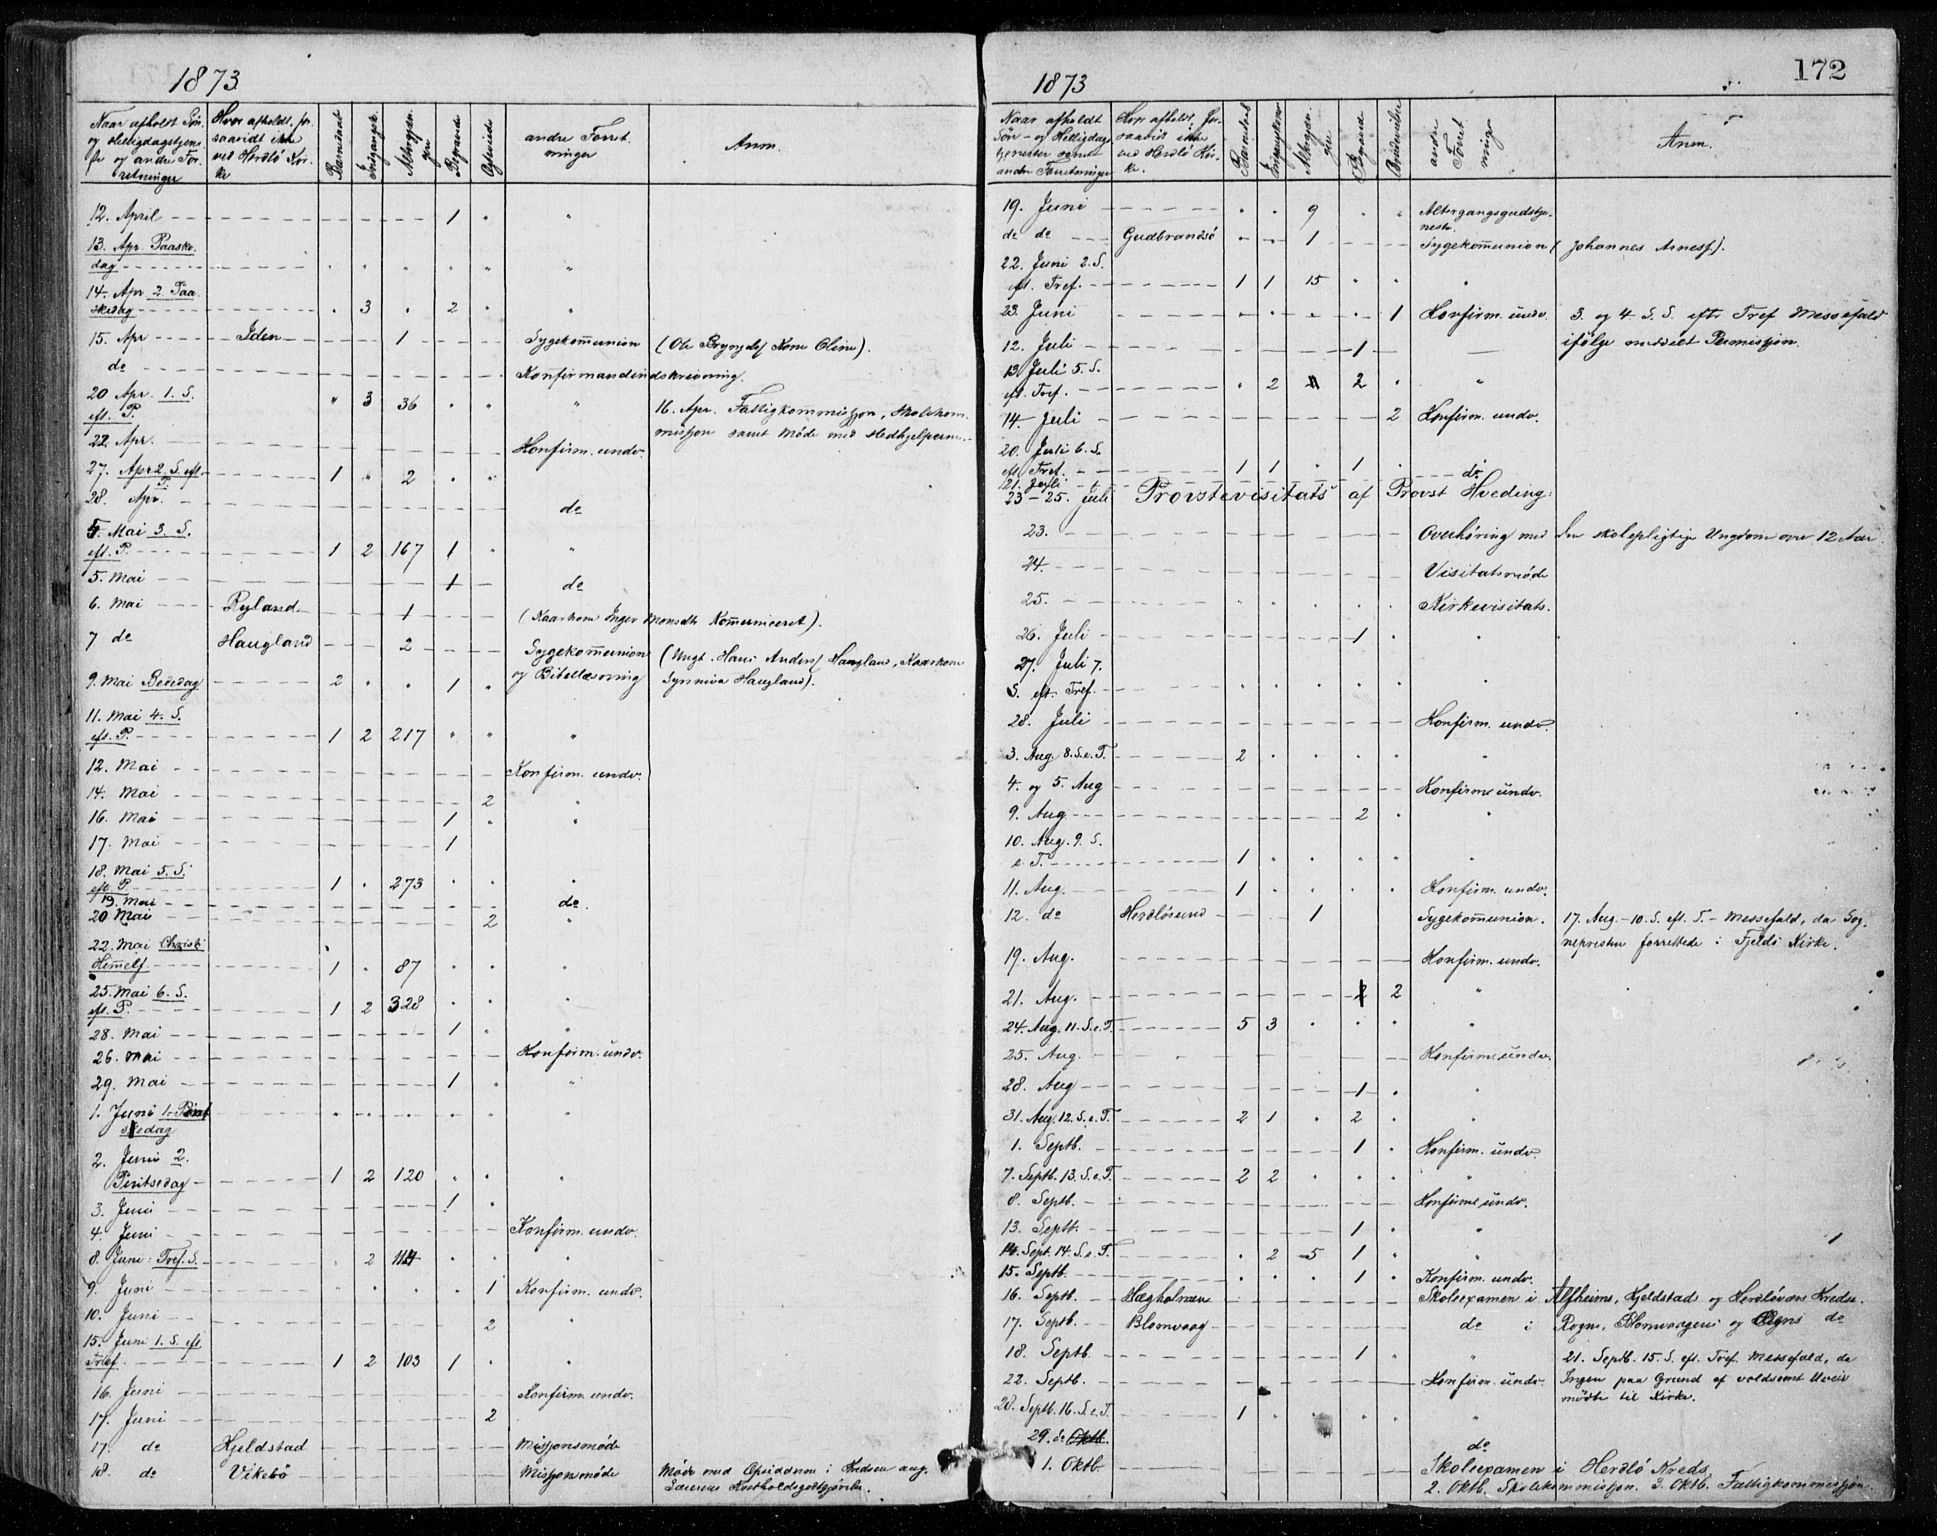 1873
Naar afholdt Søn. og Helligdagstjeneste og andre Forretninger
Hvor afholdt, forsaavidt ikke ved Herdlø Kirke
Barnedaab
Introd.
Altergjæn-
gere
Begravd
Ægteviede
andre Forret-
ninger
Anm.
12. April 1 " "
13. Apr. Paaske-
dag " " " " " "
14. Apr 2. Paa-
skedag " 3 " 2 " "
15. Apr Iden 1 Sygekom̄union (Ole Kone Oline).
do Konfirmandindskrivning.
20 Apr. 1. S.
eft. P. " 3 36 " " " 16. Apr. Fattigkommissjon, Skolekom-
missjon samt Møde med Medhjelperne.
22. Apr. Konfirm. undv.
27. Apr 2. S. eft.
P. 1 " 2 " "
28. Apr. do
4. Mai 3. S.
eft. P. 1 2 167 1 " "
5. Mai 1 do
6. Mai Ryland 1 (Kaarkone Inger Monsdtr Kom̄uniceret).
7 do Haugland 2 Sygekom̄union (Ungk. Hans Anders Haugland, Kaarkone
og Bibellæsning Synneva Haugland).
9. Mai Bededag 2 " " 1 "
11. Mai 4. S.
eft. P. 1 2 217 " " "
12. Mai Konfirm. undv.
14. Mai 2 "
16. Mai 1 " "
17. Mai 1
18. Mai 5. S.
eft. P. 1 " 273 " " "
19. Mai do
20 Mai 2 "
22. Mai Christi
Himmelf. 1 " 87 " " "
25. Mai 6. S.
eft. P. 1 2 328 " " "
28. Mai 1 " "
26. Mai Konfirm. undv.
29. Mai 1 " "
1. Juni 1. Pint-
sedag " " " " " "
2. Juni 2.
Pintsedag 1 2 120 " " "
3. Juni 1 "
4. Juni Konfirm. undv.
8. Juni: Tref. S. " 2 114 " " "
9. Juni " " " " 1 Konfirm. undv.
10. Juni 2 "
15. Juni 1. S. eft
Tref. 1 2 103 1 " "
16. Juni Konfirm. undv.
17. Juni 2
17. do Hjeldstad Missjonsmøde
18. do Vikebø Missjonsmøde Møde med Opsidderne i Kredsen ang.
Lærerens Kostholdsgodtgjørelse.
172
1873
Naar afholdt
Søn- og Helligdags-
tjenester samt
andre Forretninger
Hvor afholdt, for-
saavidt ikke
ved Herdlø Kir-
ke.
Barnedaab
Introduktion
Altergjæn-
gere
Begravd
Brudevielse
andre
Forret-
ninger
Anm.
19. Juni " " 9 " " Altergangsgudstje-
neste.
do do Gudbrandsø " " 1 Sygekom̄union (Johannes Arness).
22. Juni 2. S.
eft. Tref. 1 1 15 " " "
23. Juni " " " " 1 Konfirm. undv. 3. og 4. S. S. eftr Tref Messefald
12. Juli 1 ifølge Permissjon.
13. Juli 5. S.
eft. Tref. " 2 " 2 " "
14. Juli 2 Konfirm. undv.
20. Juli 6. S.
eft. Tref. 1 1 " 1 "
21. Juli do
23-25. Juli Provstevisitats af Provst Hveding:
23. Overhøring med den skolepligtige Ungdom over 12 Aar.
24. Visitatsmøde
25. " " " " " Kirkevisitats.
26. Juli 1 " "
27. Juli 7.
S. eft. Tref. " " " " " "
28. Juli Konfirm. undv.
3. Aug 8. S. e. T. 2 " " " " "
4. og 5. Aug Konfirm. undv.
9. Aug. 2 " "
10. Aug. 9. S.
e. T. 1 " " " " "
11. Aug. 1 " " " " Konfirm. undv.
12. do Herdløsund 1 Sygekom̄union. 17. Aug.-10. S. eft. T.- Messefald, da Sog-
nepresten forrettede i Fjelds Kirke.
19. Aug. Konfirm. undv.
21. Aug. 2 "
24. Aug. 11. S. e. T. 5 3 " " " "
25. Aug. Konfirm. undv.
28. Aug 1 " "
31. Aug. 12. S. e. T. 2 1 " 2 " "
1. Septb. 1 " Konfirm. undv.
7. Septb. 13. S. e. T. 2 2 " " " "
8. Septb. Konfirm. undv.
13. Septb. 1 " "
14. Sept. 14. S. e. T. " 2 5 1 " "
15. Septb. " " " 1 " Konfirm. undv.
16. Septb. Hægholmen Skoleexamen i Alfheims, Hjeldstads og Herdløvær Kredse.
17. Septb. Blomvaag do i Rogns, Blomvaagens og Øigns do
18. Septb. 1 " " 21. Septb. 15. S. eft. Tref. Messefald, da
22. Septb. Konfirm. undv. Ingen paa Grund af voldsomt Uveir
mødte til Kirke.
28. Septb. 16. S. e. T. 1 " " " "
29. do Oktb. do
1. Oktb. Skoleexamen i Herdlø Kreds.
2. Oktb. Skolekommissjon. 3. Oktb. Fattigkommissjon.